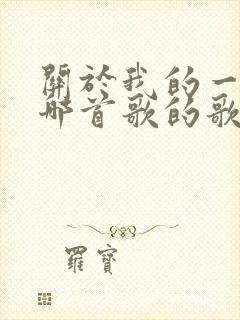 關於我的一
哪首歌的歌
羅寶